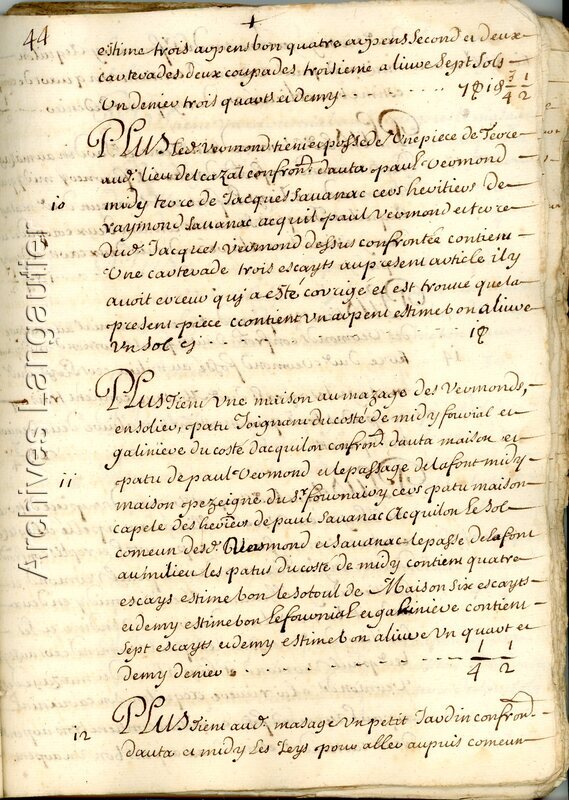 44
estime trois arpens bon quatre arpens second et deux
carterades deux coupades troisieme alivre sept sols
Un denier trois quarts et demy 7 s 1 d 3/4 1/2
10
PLus led. Vermond tient et possede Une piece de Terre
aud. lieu del cazal confrond. dauta paul Vermond
midy terre de Jacques Savanac cers heritiers de
raymond Savanac acquil paul Vermond et terre
dud. Jacques Vermond dessus confrontée contient
Une carterade trois escayts au present article il y
avoit erreur quj a esté corrigé et est trouvé que la
present piece ccontient Un arpent estime bon alivre
Un sol 1 s
11
PLus Tient Une maison au mazage des Vermonds,
en solier, patu Joignant du costé de midy fournial et
galiniere du costé dacquilon confrond. dauta maison et
patu de paul Vermond et le passage de la font midy
maison et pezeigne du Sr. fournairy cers patu maison
capele des heriers de paul Savanac Acquilon le Sol
comeun desd. Vermond et Savanac le passe de la font
au milieu les patus du costé de midy contient quatre
escays estime bon le sotoul de Maison Six escayts
et demy estime bon le fournial et galiniere contient
sept escayts et demy estime bon alivre Un quart et
demy denier 1/4 1/2
12
PLus Tient aud. masage Un petit Jardin confrond.
dauta et midy les Teys pour aller au puis comeun
Archives Langautier